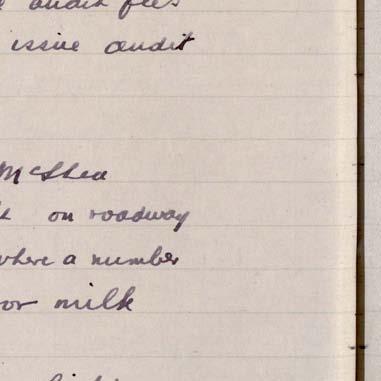 audit fees
issue audit
McShea
on roadway
where a number
or milk